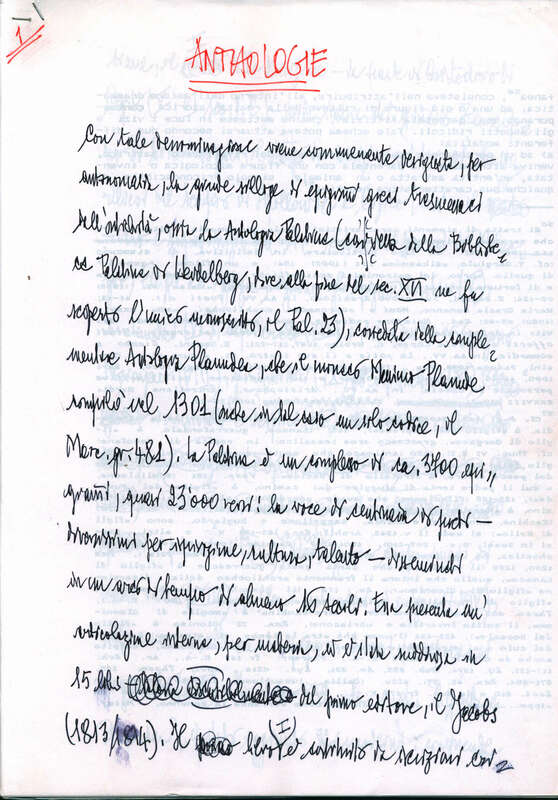 1
ANTHOLOGIE
Con tale denominazione viene comunemente designata, per
antonomasia, la grande silloge di epigrammi greci trasmessaci
dall'antichità, ossia la Antologia Palatina (così detta dalla Bibliote
ca Palatina di Heidelberg, dove alla fine del sec. XVI ne fu
scoperto l'unico manoscritto, il Pal. 23), corredata della comple
mentare Antologia Planudea, che il monaco Massimo Planude
compilò nel 1301 (anche in tal caso un solo codice, il
Marc. gr. 481). La Palatina è un complesso di ca. 3700 epi
grammi, quasi 23'000 versi: la voce di centinaia di poeti —
diversissimi per ispirazione, cultura, talento — disseminati
in un arco di tempo di almeno 16 secoli. Essa presenta un'
articolazione interna, per materia, ed è stata suddivisa in
15 libri del primo editore, il Jacobs
(1813/1814). Il libro (I) è costituito da iscrizioni cri
2